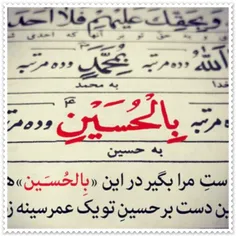 وَبِحَقِّكَ عَلَيْهِمْ فَلا اَحَدَ
اللهُ وده مرتبه بِمُحَمَّدٍ ده مرتبه
خدا به محمد
مرتبه بِالْحُسَيْنِ وده مرتبه
به حسین
دستِ مرا بگیر در این «بِالحُسَین»
این دست بر حسینِ تو یک عمر سینه ز